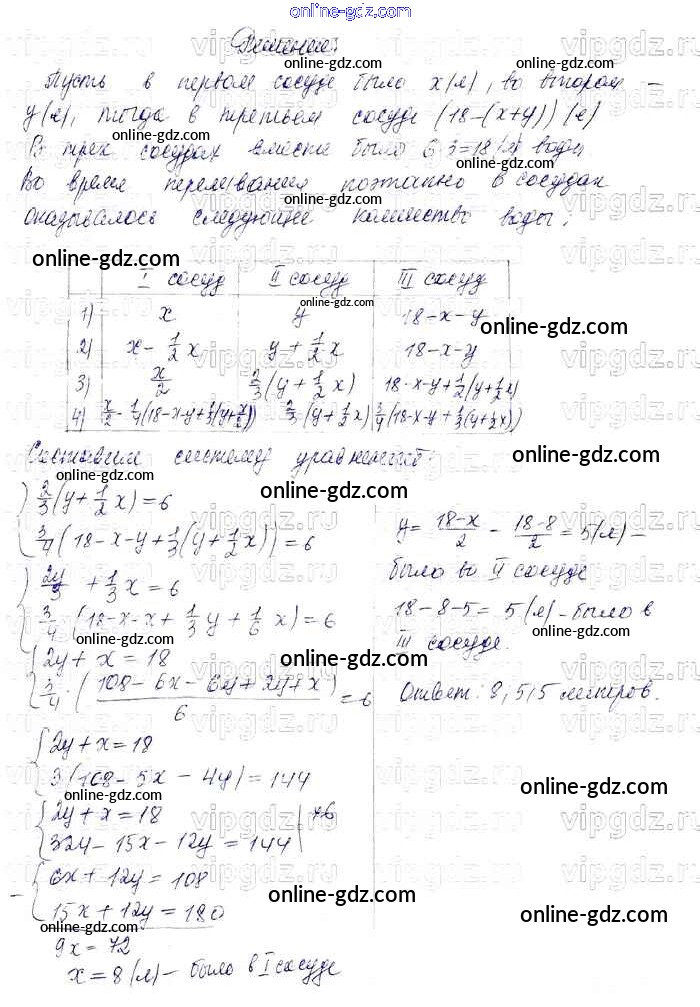 Решение:
Пусть в первом сосуде было x(л), во втором –
y(л), тогда в третьем сосуде (18-(x+y)) (л)
В трех сосудах вместе было 6·3=18(л) воды
Во время переливания поэтапно в сосудах
оказывалось следующее количество воды:
I сосуд II сосуд III сосуд
1) x y 18-x-y
2) x-1/2x y+1/2x 18-x-y
3) x/2 2/3(y+1/2x) 18-x-y+1/2(y+1/2x)
4) x/2-1/4(18-x-y+1/3(y+x/2)) 2/3(y+1/2x) 3/4(18-x-y+1/3(y+1/2x))
Составим систему уравнений:
2/3(y+1/2x)=6
3/4(18-x-y+1/3(y+1/2x))=6
2y/3+1/3x=6
3/4(18-x-x+1/3y+1/6x)=6
2y+x=18
3/4·(108-6x-6y+2y+x)/6=6
2y+x=18
3(108-5x-4y)=144
2y+x=18 |·6
324-15x-12y=144
6x+12y=108
15x+12y=180
9x=72
x=8(л) – было в I сосуде
y=(18-x)/2 - (18-8)/2=5(л) –
было во II сосуде
18-8-5=5(л) – было в
III сосуде.
Ответ: 8,5,5 литров.
online-gdz.com
vipgdz.ru